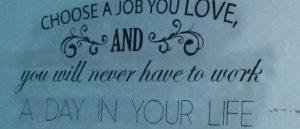 CHOOSE A JOB YOU LOVE,
AND
you will never have to work
A DAY IN YOUR LIFE